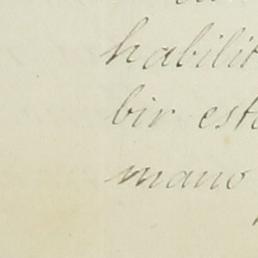 habilit
bir est
mano